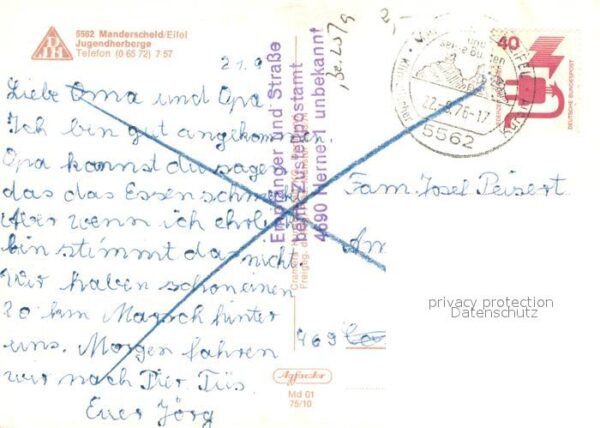 5562 Manderscheid/Eifel
Jugendherberge
Telefon (0 65 72) 7 57
DJH
21.9
Liebe Oma und Opa
Ich bin gut angekommen
Opa kannst du sagen
das das Essen schmeckt
Aber wenn ich ehrlich
bin stimmt das nicht.
Wir haben schon einen
20 km Marsch hinter
uns. Morgen fahren
wir nach
Euer Jörg
Empfänger und Straße
beim Zustellpostamt
4690 Herne 1 unbekannt
Agfacolor
Md 01
75/10
2,-
40
DEUTSCHE BUNDESPOST
22.9.76-17
5562
Fam. Josef Peisert
Am
469
privacy protection
Datenschutz